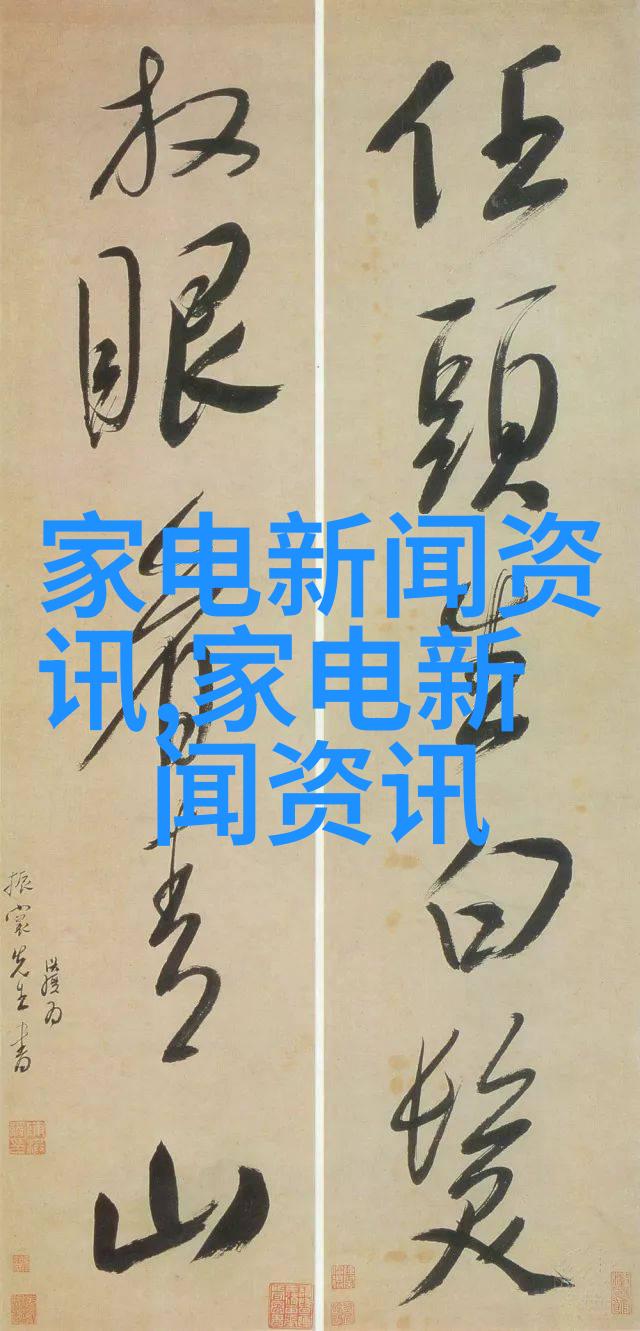 任頭生白髮
放眼看青山
先生書
家电新闻资
讯,家电新
闻资讯